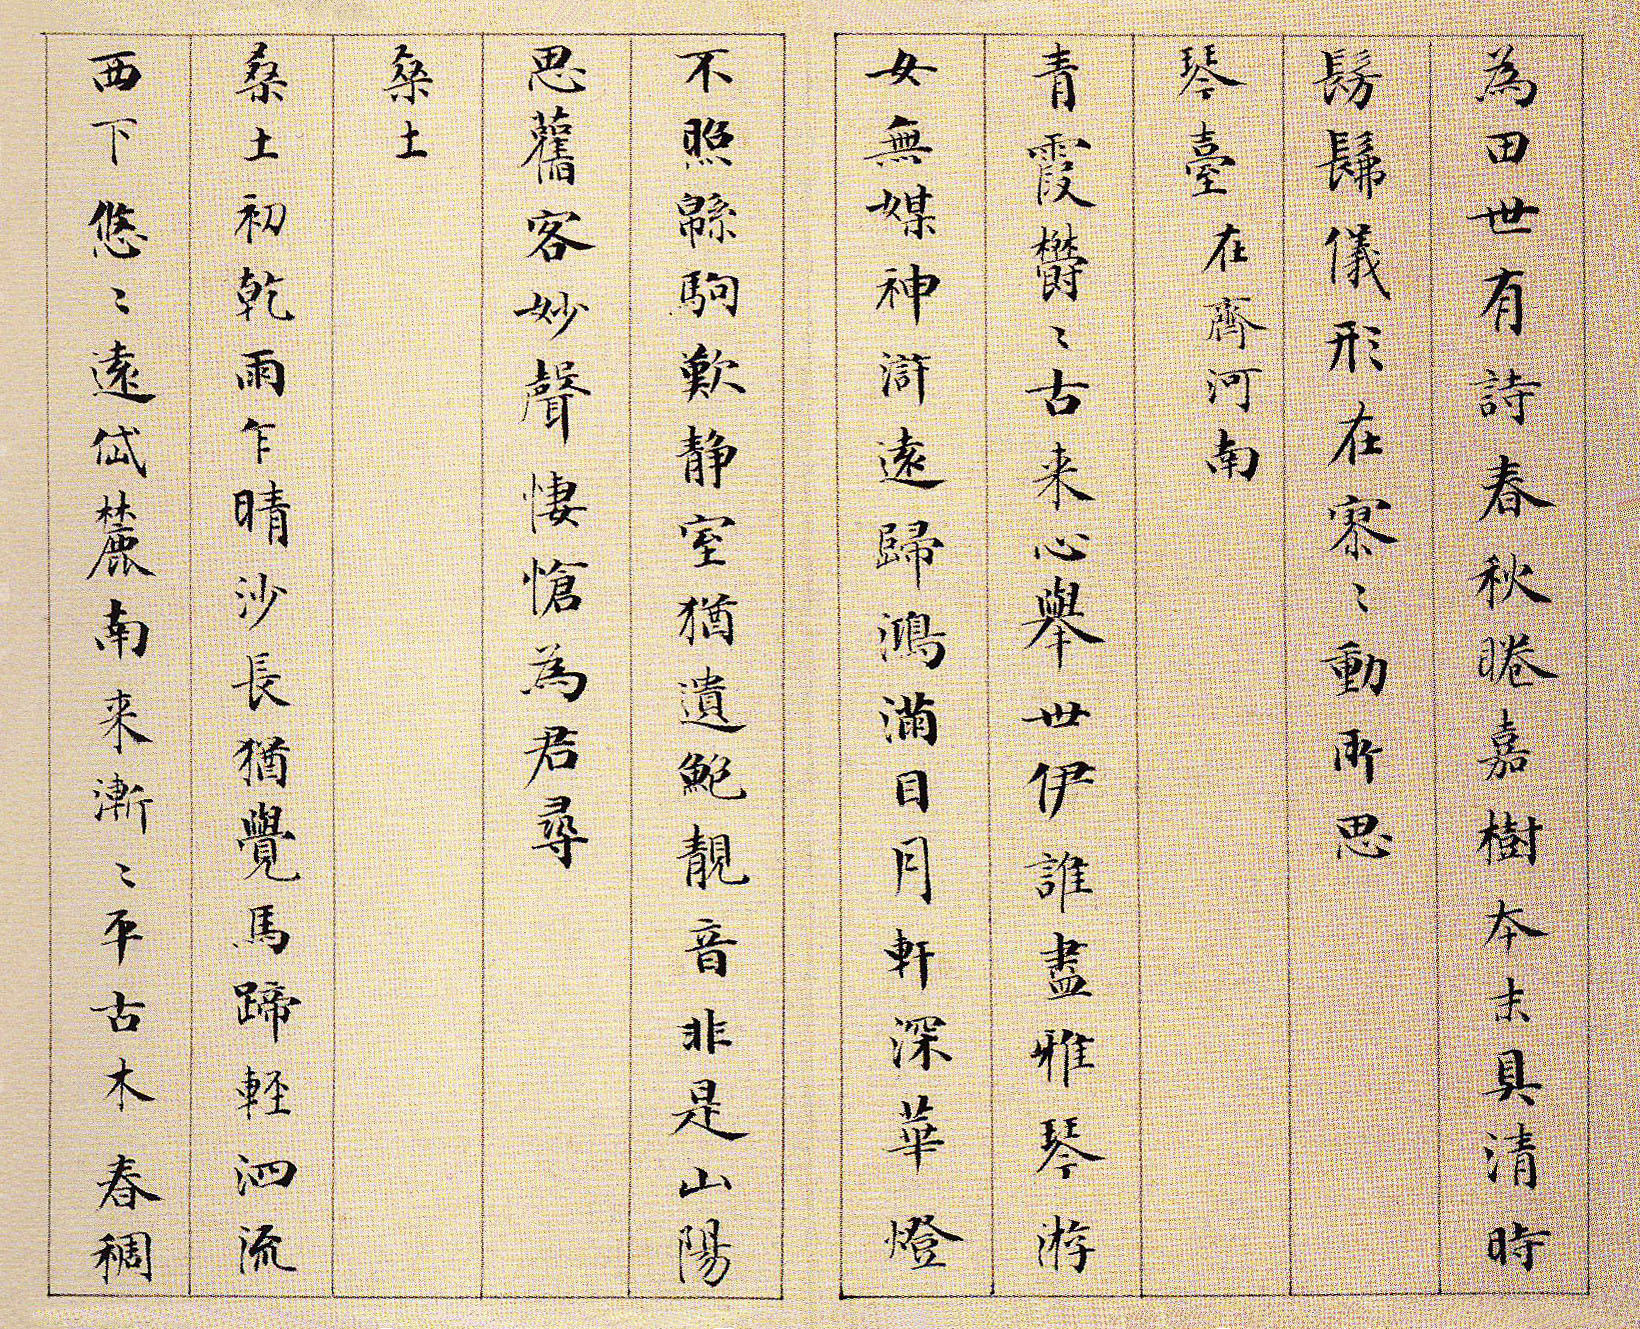 為田世有詩春秋睠嘉樹本末具清時
髣髴儀形在寥〻動所思
琴臺在齊河南
青霞鬱〻古来心舉世伊誰盡雅琴游
女無媒神滸遠歸鴻滿目月軒深華燈
不照緜駒歎静室猶遺鮑靚音非是山陽
思舊客妙聲悽愴為君尋
桑土
桑土初乾雨乍晴沙長猶覺馬蹄輕泗流
西下悠〻遠岱麓南来漸〻平古木春稠